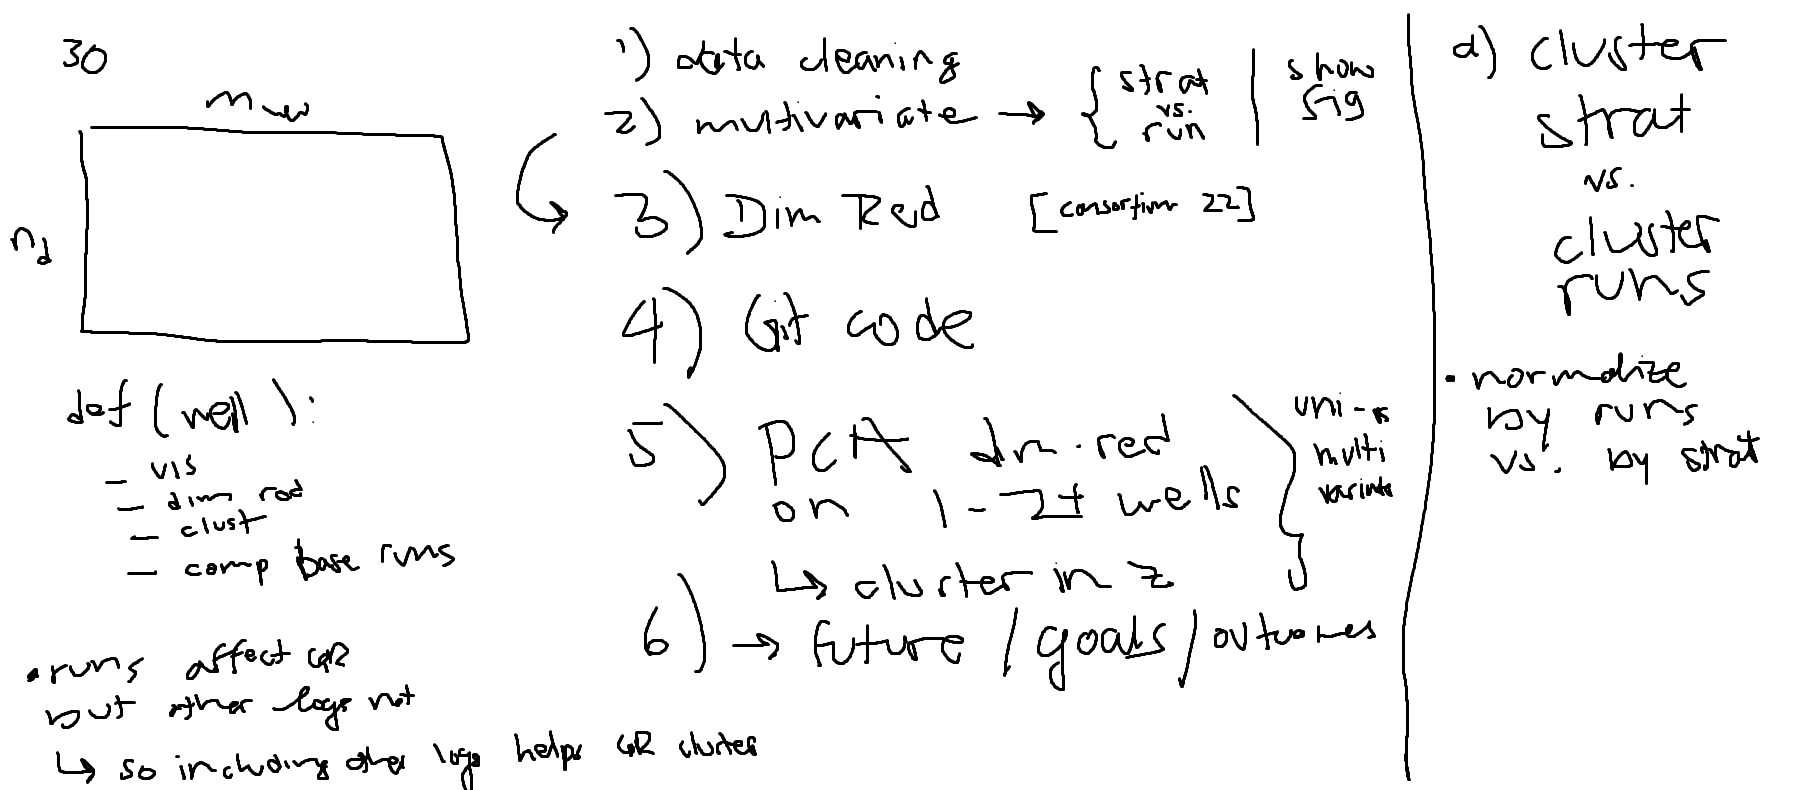 30
m_w
n_d
def (well):
- vis
- dim red
- clust
- comp base runs
• runs affect GR
but other logs not
↳ so including other logs helps GR cluster
1) data cleaning
2) multivariate → { strat
vs.
run
show
sig
3) Dim Red [consortium 22]
4) Git code
5) PCA dm.red
on 1-2+ wells
↳ cluster in z
uni- vs
multi
variate
6) → future / goals / outcomes
d) cluster
strat
vs.
cluster
runs
• normalize
by runs
vs. by strat